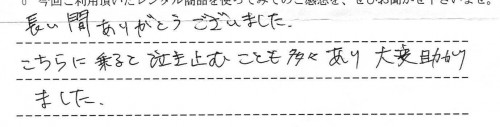 今回ご利用頂いたレンタル商品を使ってみてのご感想を、ぜひお聞かせ下さいませ。
長い間ありがとうございました。
こちらに乗ると泣き止むことも多々あり大変助かり
ました。